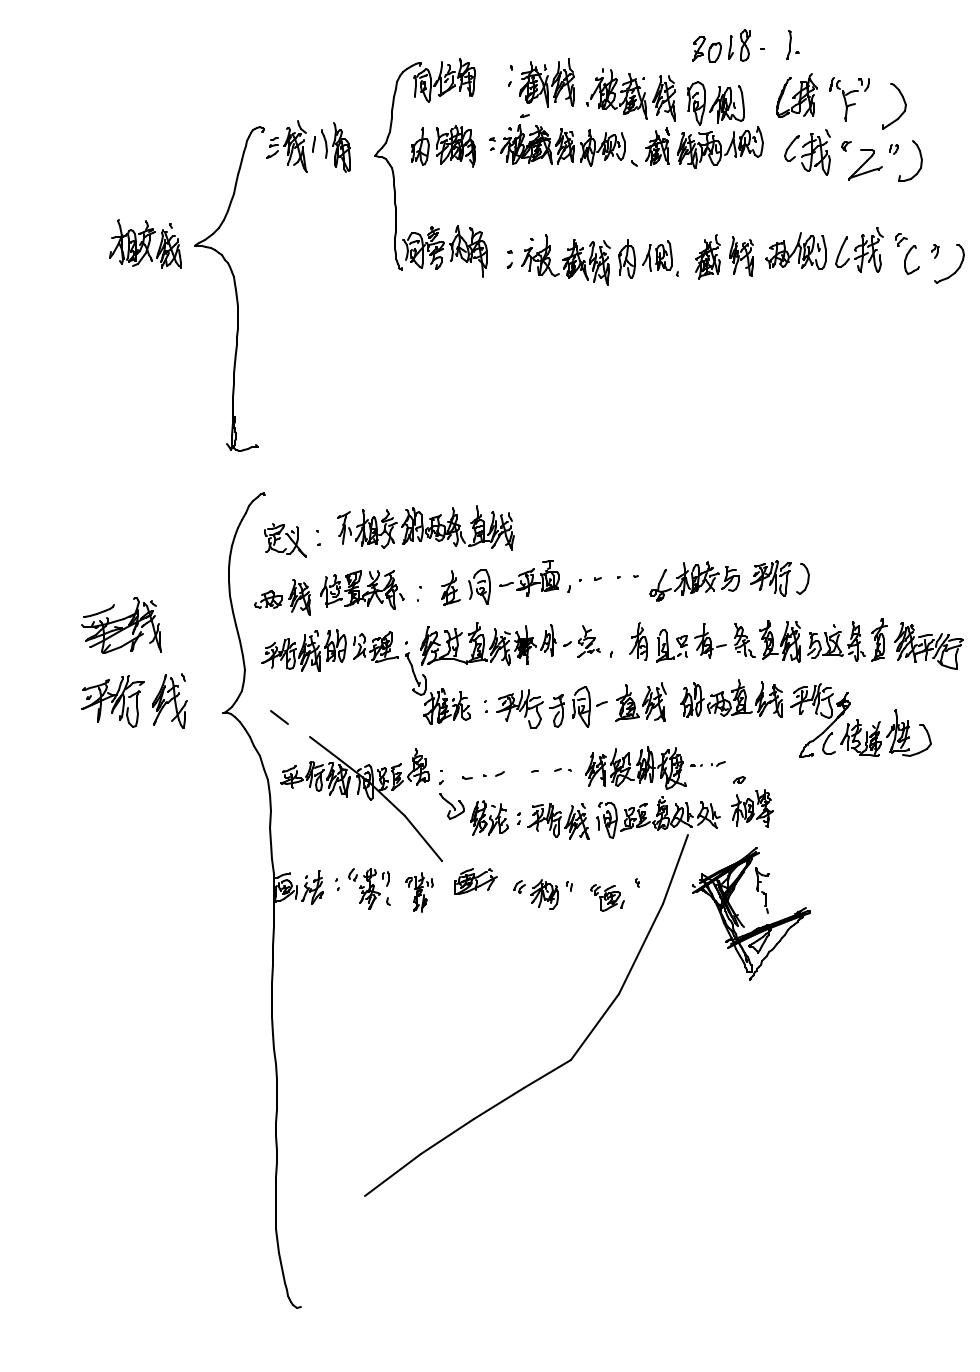 2018-1.
三线八角
同位角：截线、被截线同侧（找“F”）
内错角：被截线内侧、截线两侧（找“Z”）
相交线
同旁内角：被截线内侧、截线两侧（找“C”）
定义：不相交的两条直线
两线位置关系：在同一平面，……（相交与平行）
平行线的公理：经过直线外一点，有且只有一条直线与这条直线平行
平行线
推论：平行于同一直线的两直线平行
（传递性）
平行线间距离：… … … 线段的长度…。
结论：平行线间距离处处相等
画法：“落”、“靠” “移” “画”